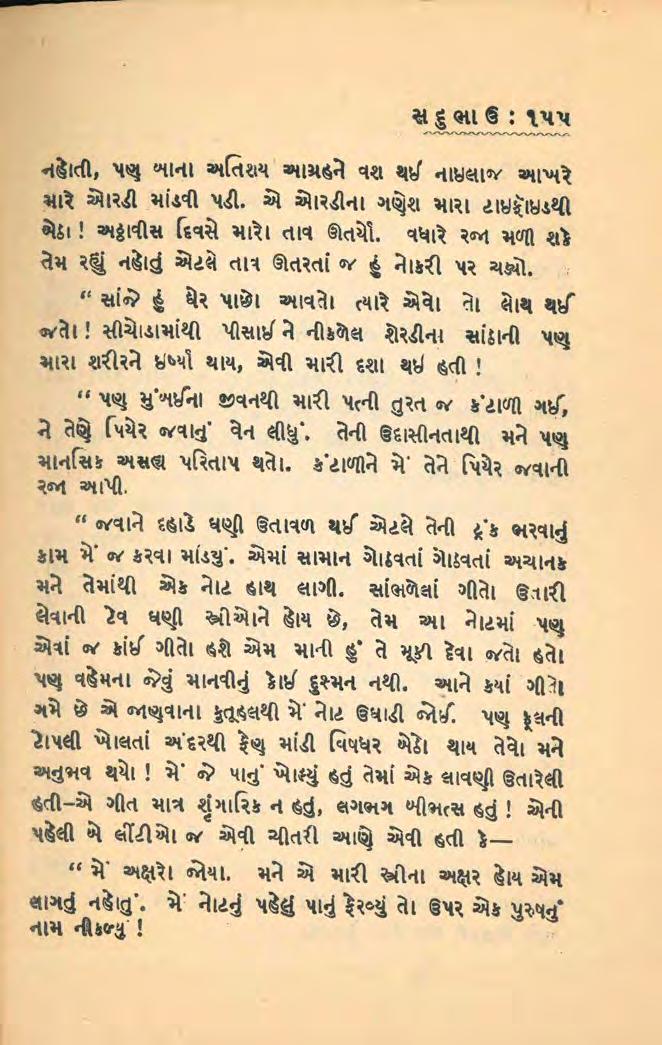 સદુભાઉ : ૧૫૫
નહોતી, પણ બાના અતિશય આગ્રહને વશ થઈ નાઇલાજ આખરે
મારે ઓરડી માંડવી પડી. એ ઓરડીના ગણેશ મારા ટાઇફૉઇડથી
બેઠા ! અઠ્ઠાવીસ દિવસે મારો તાવ ઊતર્યો. વધારે રજા મળી શકે
તેમ રહ્યું નહોતું એટલે તાવ ઊતરતાં જ હું નોકરી પર ચઢ્યો.
“ સાંજે હું ઘેર પાછો આવતો ત્યારે એવો તો લોથ થઈ
જતો ! સીચોડામાંથી પીસાઈ ને નીકળેલ શેરડીના સાંઠાની પણ
મારા શરીરને ઇર્ષ્યા થાય, એવી મારી દશા થઇ હતી !
“ પણ મુંબઈના જીવનથી મારી પત્ની તુરત જ કંટાળી ગઈ,
ને તેણે પિયેર જવાનું વેન લીધું. તેની ઉદાસીનતાથી મને પણ
માનસિક અસહ્ય પરિતાપ થતો. કંટાળીને મેં તેને પિયેર જવાની
રજા આપી.
“ જવાને દહાડે ઘણી ઉતાવળ થઈ એટલે તેની ટ્રંક ભરવાનું
કામ મેં જ કરવા માંડયું. એમાં સામાન ગોઠવતાં ગોઠવતાં અચાનક
મને તેમાંથી એક નોટ હાથ લાગી. સાંભળેલાં ગીતો ઉતારી
લેવાની ટેવ ઘણી સ્ત્રીઓને હોય છે, તેમ આ નોટમાં પણ
એવાં જ કાંઈ ગીતો હશે એમ માની હું તે મૂકી દેવા જતો હતો
પણ વહેમના જેવું માનવીનું કોઈ દુશ્મન નથી. આને કયાં ગીતો
ગમે છે એ જાણવાના કુતૂહલથી મેં નોટ ઉઘાડી જોઈ. પણ ફૂલની
ટોપલી ખોલતાં અંદરથી ફેણ માંડી વિષધર બેઠો થાય તેવો મને
અનુભવ થયો ! મેં જે પાનું ખોલ્યું હતું તેમાં એક લાવણી ઉતારેલી
હતી–એ ગીત માત્ર શૃંગારિક ન હતું, લગભગ બીભત્સ હતું ! એની
પહેલી બે લીંટીઓ જ એવી ચીતરી આણે એવી હતી કે—
“ મેં અક્ષરો જોયા. મને એ મારી સ્ત્રીના અક્ષર હોય એમ
લાગતું નહોતું. મેં નોટનું પહેલું પાનું ફેરવ્યું તો ઉપર એક પુરુષનું
નામ નીકળ્યું !